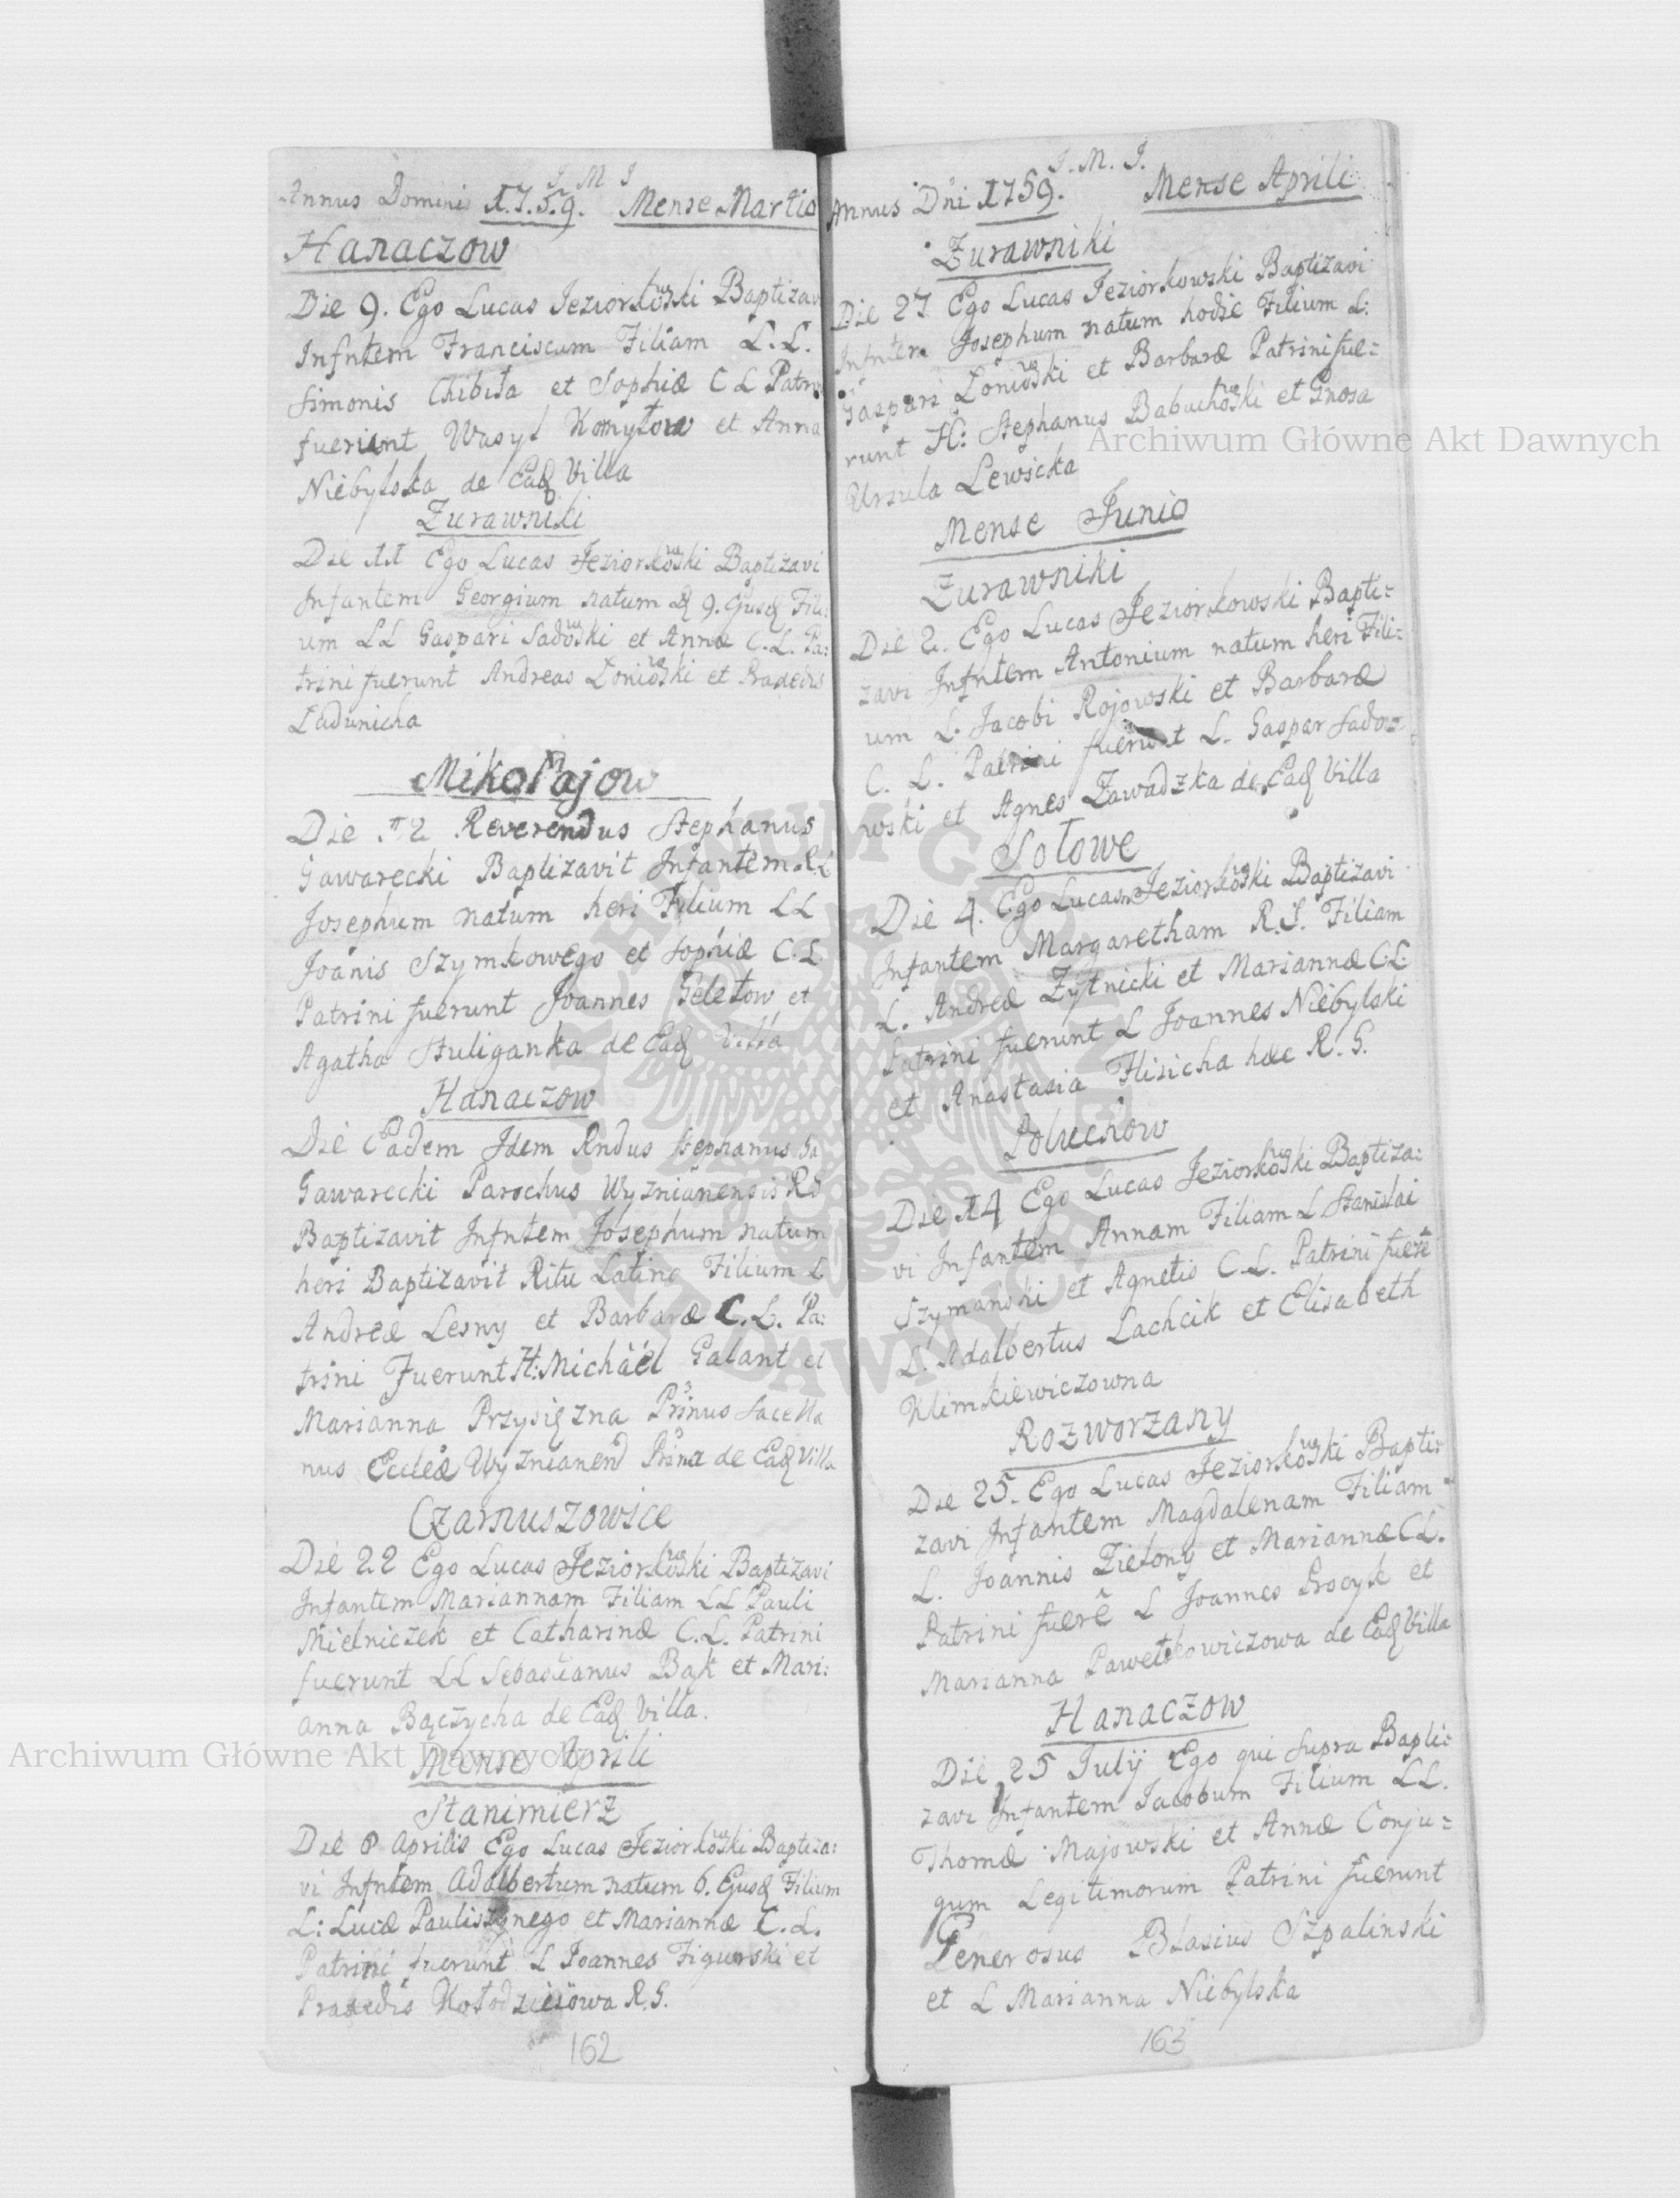 J. M. J.
Annus Domini 1.7.5.9. Mense Martio
Hanaczow
Die 9. Ego Lucas Jeziorkowski Baptizav
Infntem Franciscum Filiam L. L.
Simonis Chibita et Sophiæ C L Patri
fuerunt Wasyl Komytow et Anna
Niebylska de Eadq Villa
Zurawniki
Die 11 Ego Lucas Jeziorkowski Baptizavi
Infantem Georgium natum 9. Ejusq Fili:
um LL Gaspari Sadowski et Annæ C. L. Pa:
trini fuerunt Andreas Loniowski et Praxedis
Ladunicha
Mikołajow
Die 12 Reverendus Stephanus
Gawarecki Baptizavit Infantem
Josephum natum heri Filium LL
Joanis Szymkowego et Sophiæ C. L
Patrini fuerunt Joannes Geletow et
Agatha Huliganka de Eadq Villa
Hanaczow
Die Eadem Idem Rndus Stephanus Ga
Gawarecki Parochus Wyznianensis
Baptizavit Infntem Josephum natum
heri Baptizavit Ritu Latino Filium L
Andreæ Lesny et Barbaræ C. L. Pa:
trini Fuerunt H: Michäel Galant et
Marianna Przysięzna Sacella
nus Ecclæ de Eadq Villa
Czarnuszowice
Die 22 Ego Lucas Jeziorkowski Baptizavi
Infantem Mariannam Filiam LL Pauli
Mielniczek et Catharinæ C. L. Patrini
fuerunt LL Sebastianus Bąk et Mari:
anna Bączycha de Eadq Villa.
Mense Aprili
Stanimierz
Die 8 Aprilis Ego Lucas Jeziorkowski Baptiza:
vi Infntem Adalbertum natum 6. Ejusq Filium
L: Lucæ Pauliszynego et Mariannæ C. L.
Patrini fuerunt L Joannes Figurski et
Praxedis Kołodzieiowa R. G.
162
J. M. J.
Annus Dni 1759. Mense Aprili
Zurawniki
Die 27 Ego Lucas Jeziorkowski Baptizavi
Infntem Josephum natum hodie Filium L:
Gaspari Loniowski et Barbaræ Patrini fue:
runt H: Stephanus Babuchowski et Gnosa
Ursula Lewicka
Mense Junio
Zurawniki
Die 2. Ego Lucas Jeziorkowski Bapti:
zavi Infntem Antonium natum heri Fili:
um L. Jacobi Rojowski et Barbaræ
C. L. Patrini fuerunt L. Gaspar Sado
wski et Agnes Zawadzka de Eadq Villa
Sołowe
Die 4. Ego Lucas Jeziorkowski Baptizavi
Infantem Margaretham R. G. Filiam
L. Andreæ Zytnicki et Mariannæ C: L:
Patrini fuerunt L Joannes Niebylski
et Anastasia Hlisicha hæc R. G.
Poluchow
Die 14 Ego Lucas Jeziorkowski Baptiza:
vi Infantem Annam Filiam L Stanislai
Szymanski et Agnetis C. L. Patrini fuerē
L. Adalbertus Lachcik et Elisabeth
Klimkiewiczowna
Rozworzany
Die 25. Ego Lucas Jeziorkowski Bapti:
zavi Infantem Magdalenam Filiam
L. Joannis Zielony et Mariannæ C L.
Patrini fuerê L Joannes Procyk et
Marianna Pawełkowiczowa de Eadq Villa
Hanaczow
Die 25 Julij Ego qui supra Bapti:
zavi Infantem Jacobum Filium LL.
Thomæ Majowski et Annæ Conju:
gum Legitimorum Patrini fuerunt
Generosus Blasius Szpalinski
et L Marianna Niebylska
163
Archiwum Główne Akt Dawnych
Archiwum Główne Akt Dawnych
ARCHIWUM GŁÓWNE AKT DAWNYCH